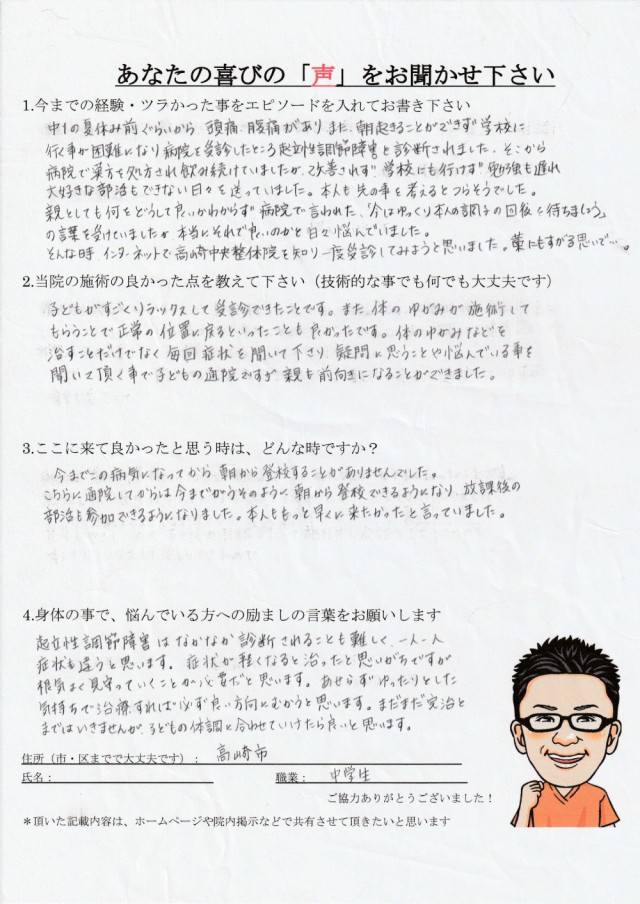 あなたの喜びの「声」をお聞かせ下さい
1.今までの経験・ツラかった事をエピソードを入れてお書き下さい
中1の夏休み前ぐらいから、頭痛、腹痛があり、また、朝起きることができず学校に
行く事が困難になり病院を受診したところ起立性調節障害と診断されました。そこから
病院で漢方を処方され飲み続けていましたが、改善されず学校にも行けず勉強も遅れ
大好きな部活もできない日々を送っていました。本人も先の事を考えるとつらそうでした。
親としても何をどうして良いかわからず病院で言われた、「今はゆっくり本人の調子の回復を待ちましょう」
の言葉を受けていましたが本当にそれで良いのかと日々悩んでいました。
そんな時、インターネットで高崎中央整体院を知り一度受診してみようと思いました。藁にもすがる思いで…。
2.当院の施術の良かった点を教えて下さい（技術的な事でも何でも大丈夫です）
子どもがすごくリラックスして受診できたことです。また、体のゆがみが施術して
もらうことで正常の位置に戻るといったことも良かったです。体のゆがみなどを
治すことだけでなく毎回症状を聞いて下さり、疑問に思うことや悩んでいる事を
聞いて頂く事で子どもの通院ですが親も前向きになることができました。
3.ここに来て良かったと思う時は、どんな時ですか？
今までこの病気になってから、朝から登校することがありませんでした。
こちらに通院してからは今までがうそのように、朝から登校できるようになり、放課後の
部活も参加できるようになりました。本人ももっと早くに来たかったと言っていました。
4.身体の事で、悩んでいる方への励ましの言葉をお願いします
起立性調節障害はなかなか診断されることも難しく、一人一人
症状も違うと思います。症状が軽くなると治ったと思いがちですが
根気よく見守っていくことが必要だと思います。あせらずゆったりとした
気持ちで治療すれば必ず良い方向にむかうと思います。まだまだ完治と
まではいきませんが、子どもの体調に合わせていけたら良いと思います。
住所（市・区までで大丈夫です）： 高崎市
氏名： 職業： 中学生
ご協力ありがとうございました！
＊頂いた記載内容は、ホームページや院内掲示などで共有させて頂きたいと思います